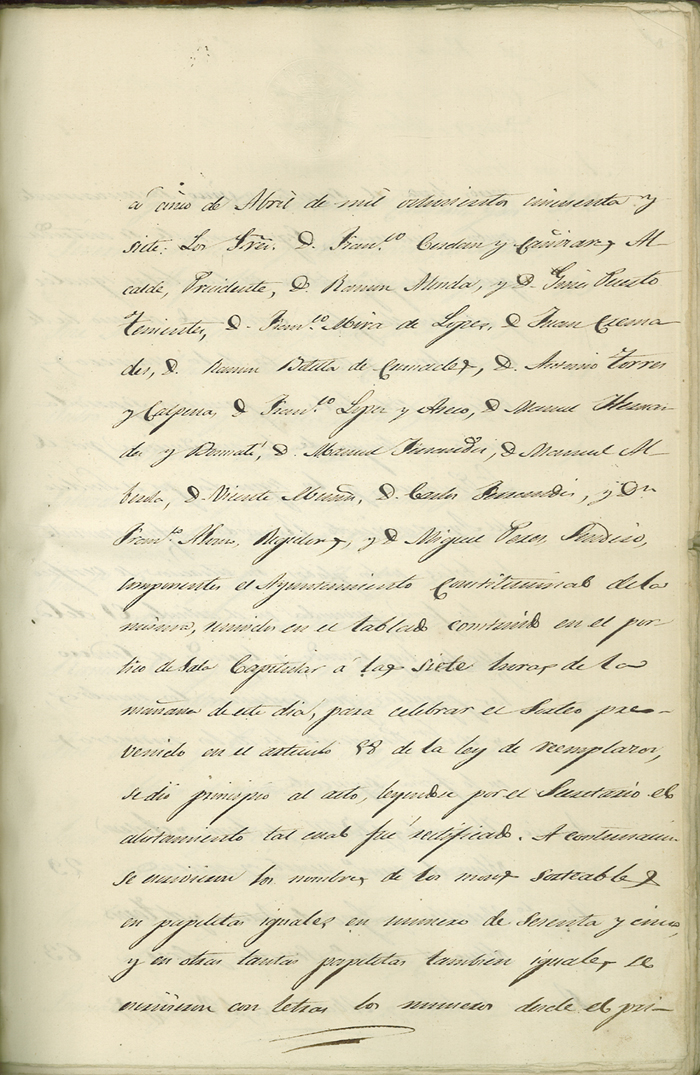 á cinco de Abril de mil ochocientos cincuenta y
siete: Los Sres. D. Fran.co Cerdan y Cañizares, Al
calde, Presidente, D. Ramon Alenda, y D. Gines
Tenientes, D. Fran.co Mira de Lopez, D. Juan Crema
des, D. Ramon Botella de Cremades, D. Antonio Torres
y Calpena, D. Fran.co Lopez y D. Manuel
y D. Manuel D. Manuel Al
beola, D. Vicente D. Carlos y Dn
Fran.co Alonso, Regidores, y D. Miguel Perez, Sindico,
componentes el Ayuntamiento Constitucional de la
misma, reunidos en el tablado construido en el por-
tico de Sala Capitular á las siete horas de la
mañana de este dia, para celebrar el Sorteo pre-
venido en el articulo 58 de la ley de reemplazos,
se dió principio al acto, leyendose por el Secretario el
alistamiento tal cual fué rectificado. A continuacion
se escribieron los nombres de los mozos sorteables
en papeletas iguales en numero de Sesenta y cinco,
y en otras tantas papeletas tambien iguales se
escribieron con letras los numeros desde el pri-